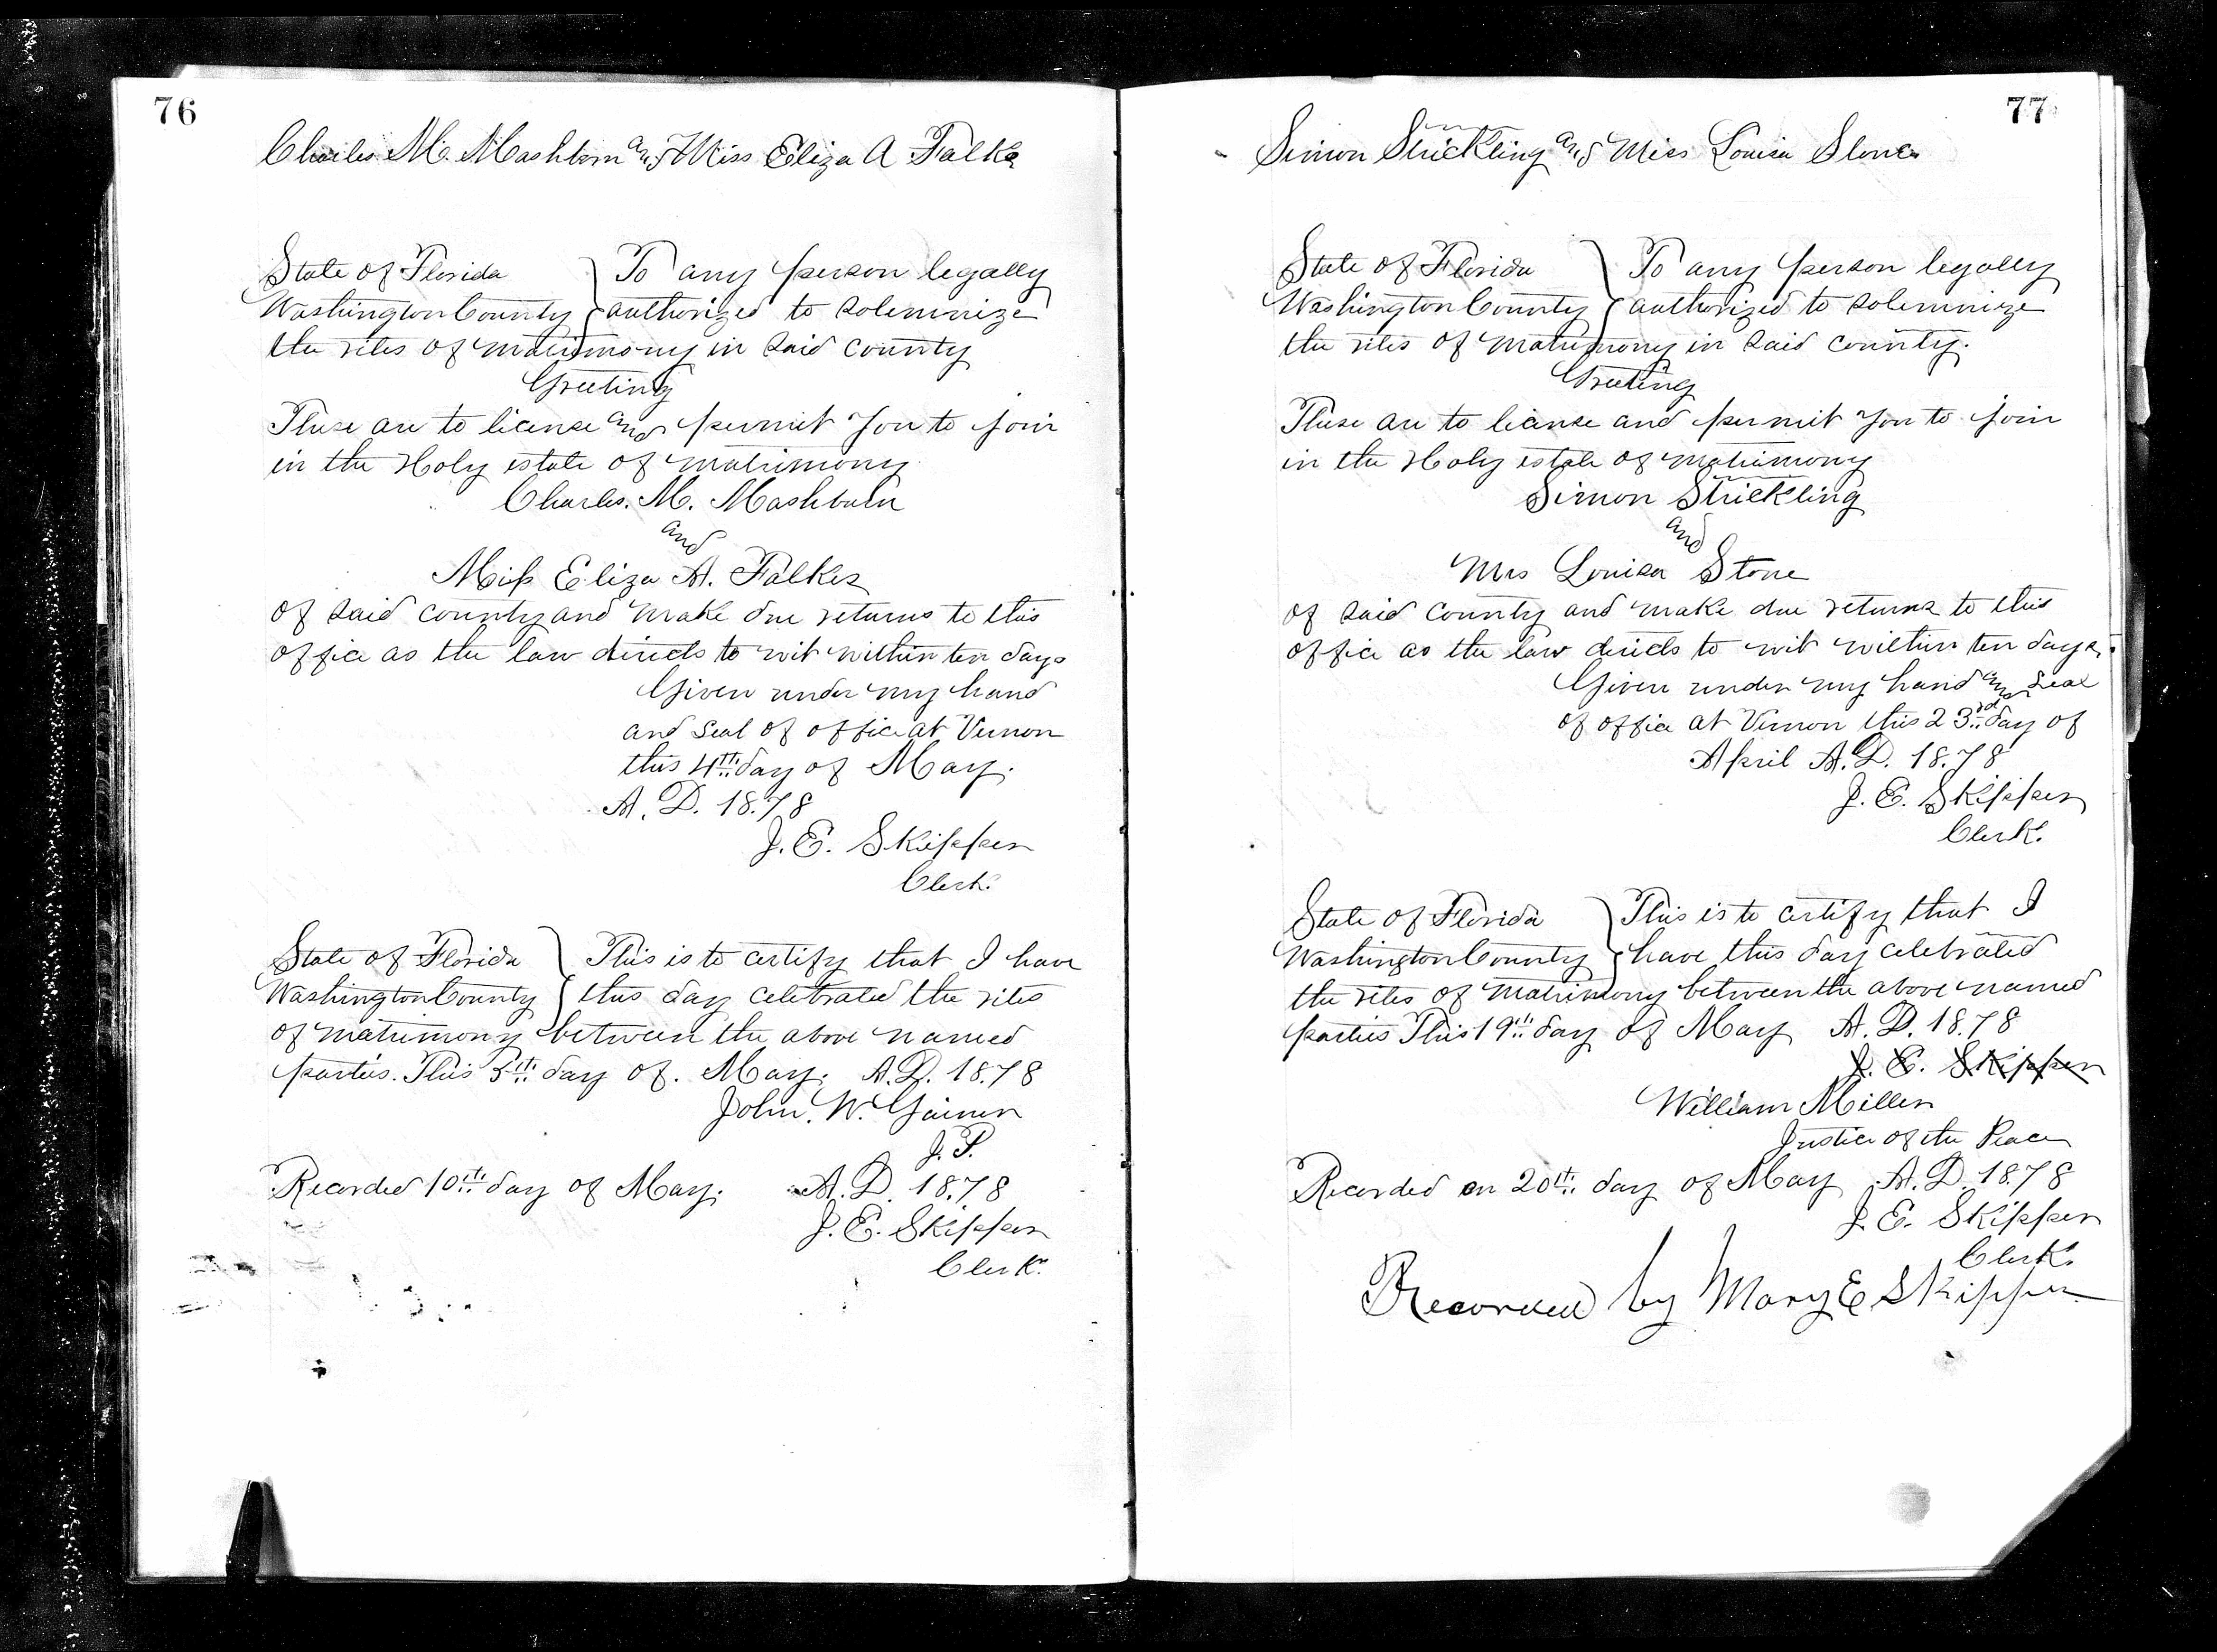 76
Charles M. Mashborn and Miss Eliza A Falks
State of Florida } To any person legally
Washington County } authorized to solemnize
the rites of matrimony in said county
Greeting
These are to license and permit you to join
in the Holy estate of matrimony
Charles. M. Mashburn
and
Miss Eliza A. Falkes
of said county and make due returns to this
office as the law directs to wit within ten days
Given under my hand
and seal of office at Vernon
this 4th day of May.
A. D. 1878
J. E. Skipper
Clerk.
State of Florida } This is to certify that I have
Washington County } this day celebrated the rites
of matrimony between the above named
parties. This 5th day of. May. A. D. 1878
John. W. Gainer
J. P.
Recorded 10th day of May. A. D. 1878
J. E. Skipper
Clerk.
77
Simon Strickling and Miss Louisa Stone
State of Florida } To any person legally
Washington County } authorized to solemnize
the rites of matrimony in said county.
Greeting
These are to license and permit you to join
in the Holy estate of matrimony
Simon Strickling
and
Mrs Louisa Stone
of said county and make due returns to this
office as the law directs to wit within ten days.
Given under my hand and seal
of office at Vernon this 23rd day of
April A. D. 1878
J. E. Skipper
Clerk.
State of Florida } This is to certify that I
Washington County } have this day celebrated
the rites of matrimony between the above named
parties This 19th day of May A. D. 1878
J. E. Skipper
William Miller
Justice of the Peace
Recorded on 20th day of May A. D. 1878
J. E. Skipper
Clerk.
Recorded by Mary E Skipper